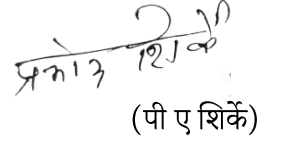 प्रमोद शिर्के
(पी ए शिर्के)